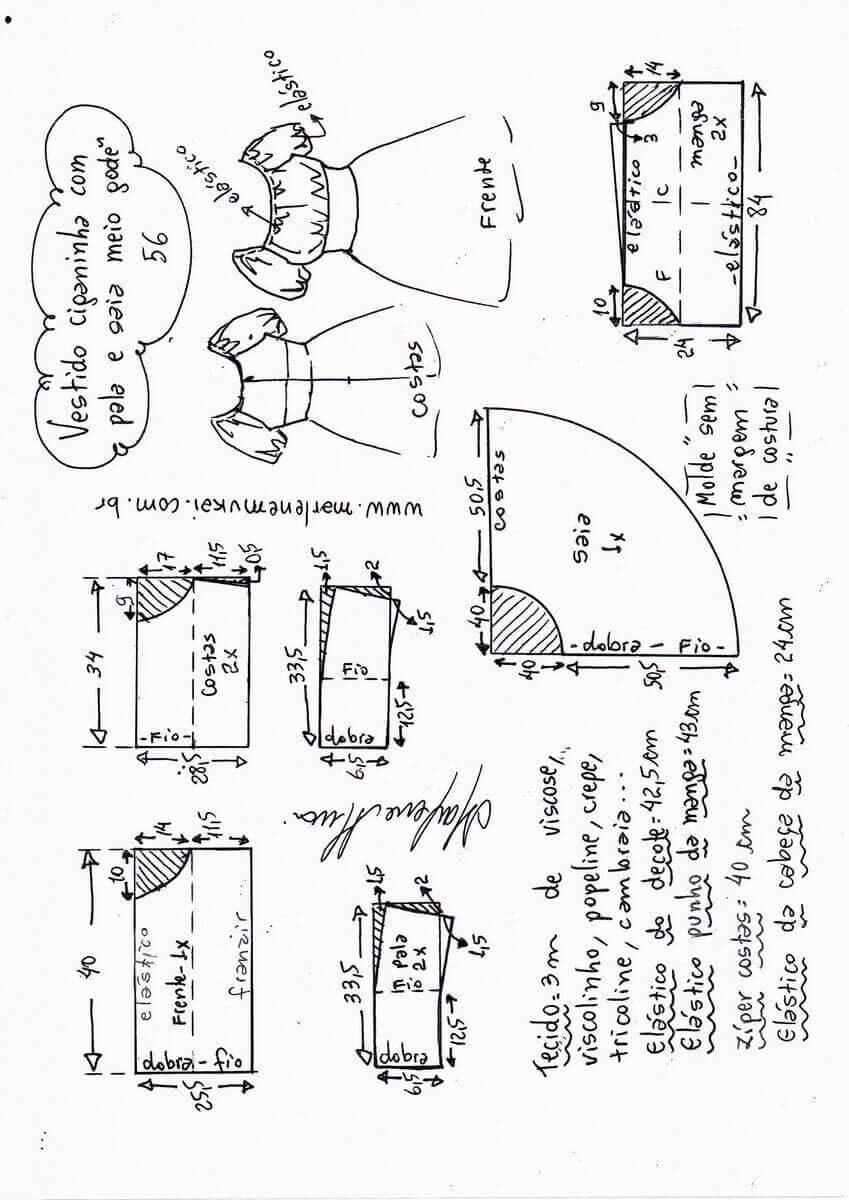 Vestido ciganinha com
pala e saia meio godê"
56
elástico
elástico
elástico
Frente
costas
www.marlenemukai.com.br
40
25,5
10
14
11,5
elástico
Frente-1x
franzir
dobra - fio
34
28,5
9
17
11,5
0,5
-Fio-
costas
2x
33,5
6,5
12,5
1,5
2
1,5
pala
2x
dobra
33,5
6,5
12,5
1,5
2
1,5
Fio
dobra
50,5
40
40
50,5
costas
saia
1x
-dobra - Fio-
10
9
14
3
24
84
elástico
F
C
manga
2x
-elástico-
Molde sem
margem
de costura
Tecido=3m de viscose,
viscolinho, popeline, crepe,
tricoline, cambraia...
Elástico do decote=42,5cm
Elástico punho da manga=43cm
zíper costas= 40 cm
Elástico da cabeça da manga=24cm